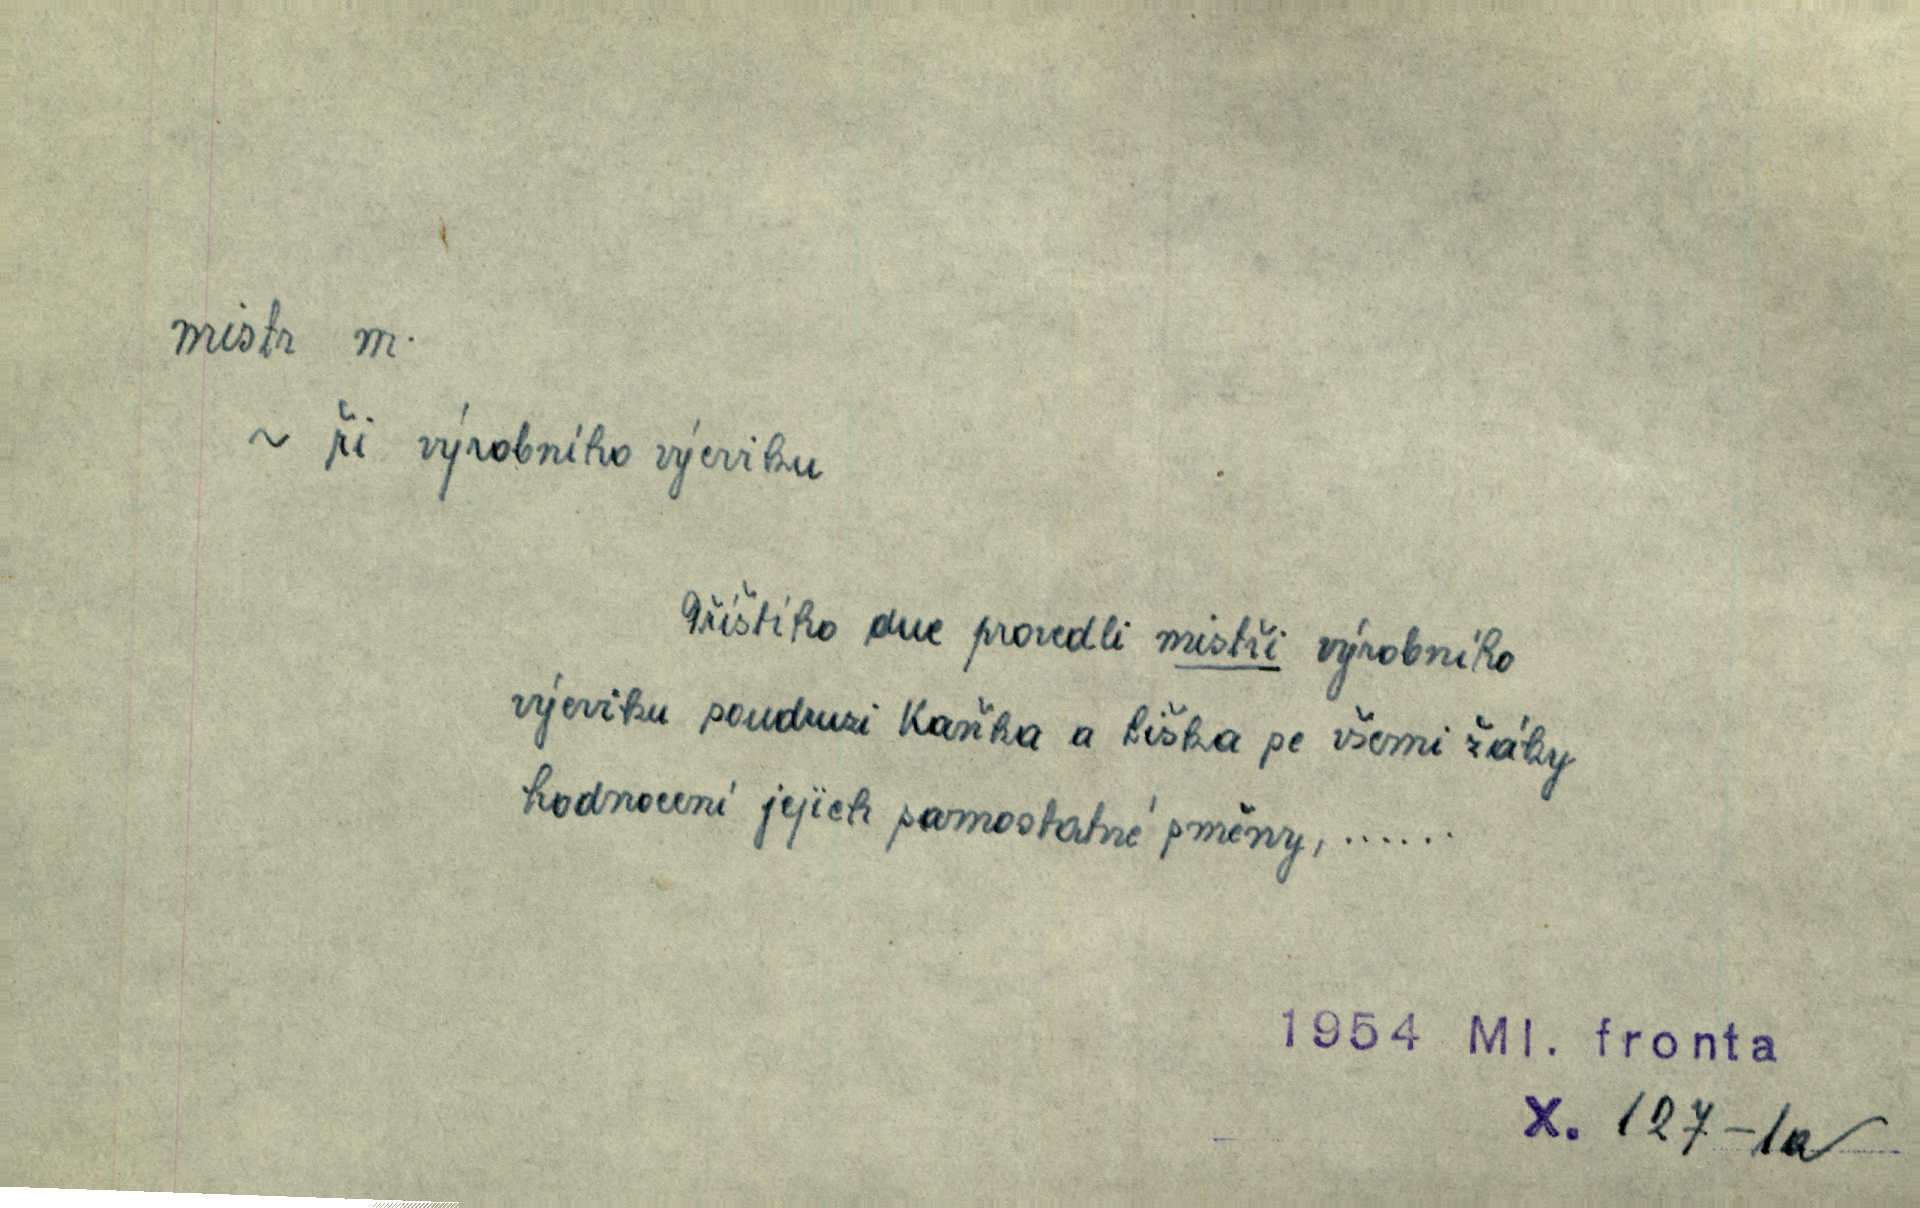 mistr m.
~ ři výrobního výcviku
Příštího dne provedli mistři výrobního
výcviku soudruzi Kaňka a Liška se všemi žáky
hodnocení jejich samostatné směny, ......
1954 Ml. fronta
X. 127-1a